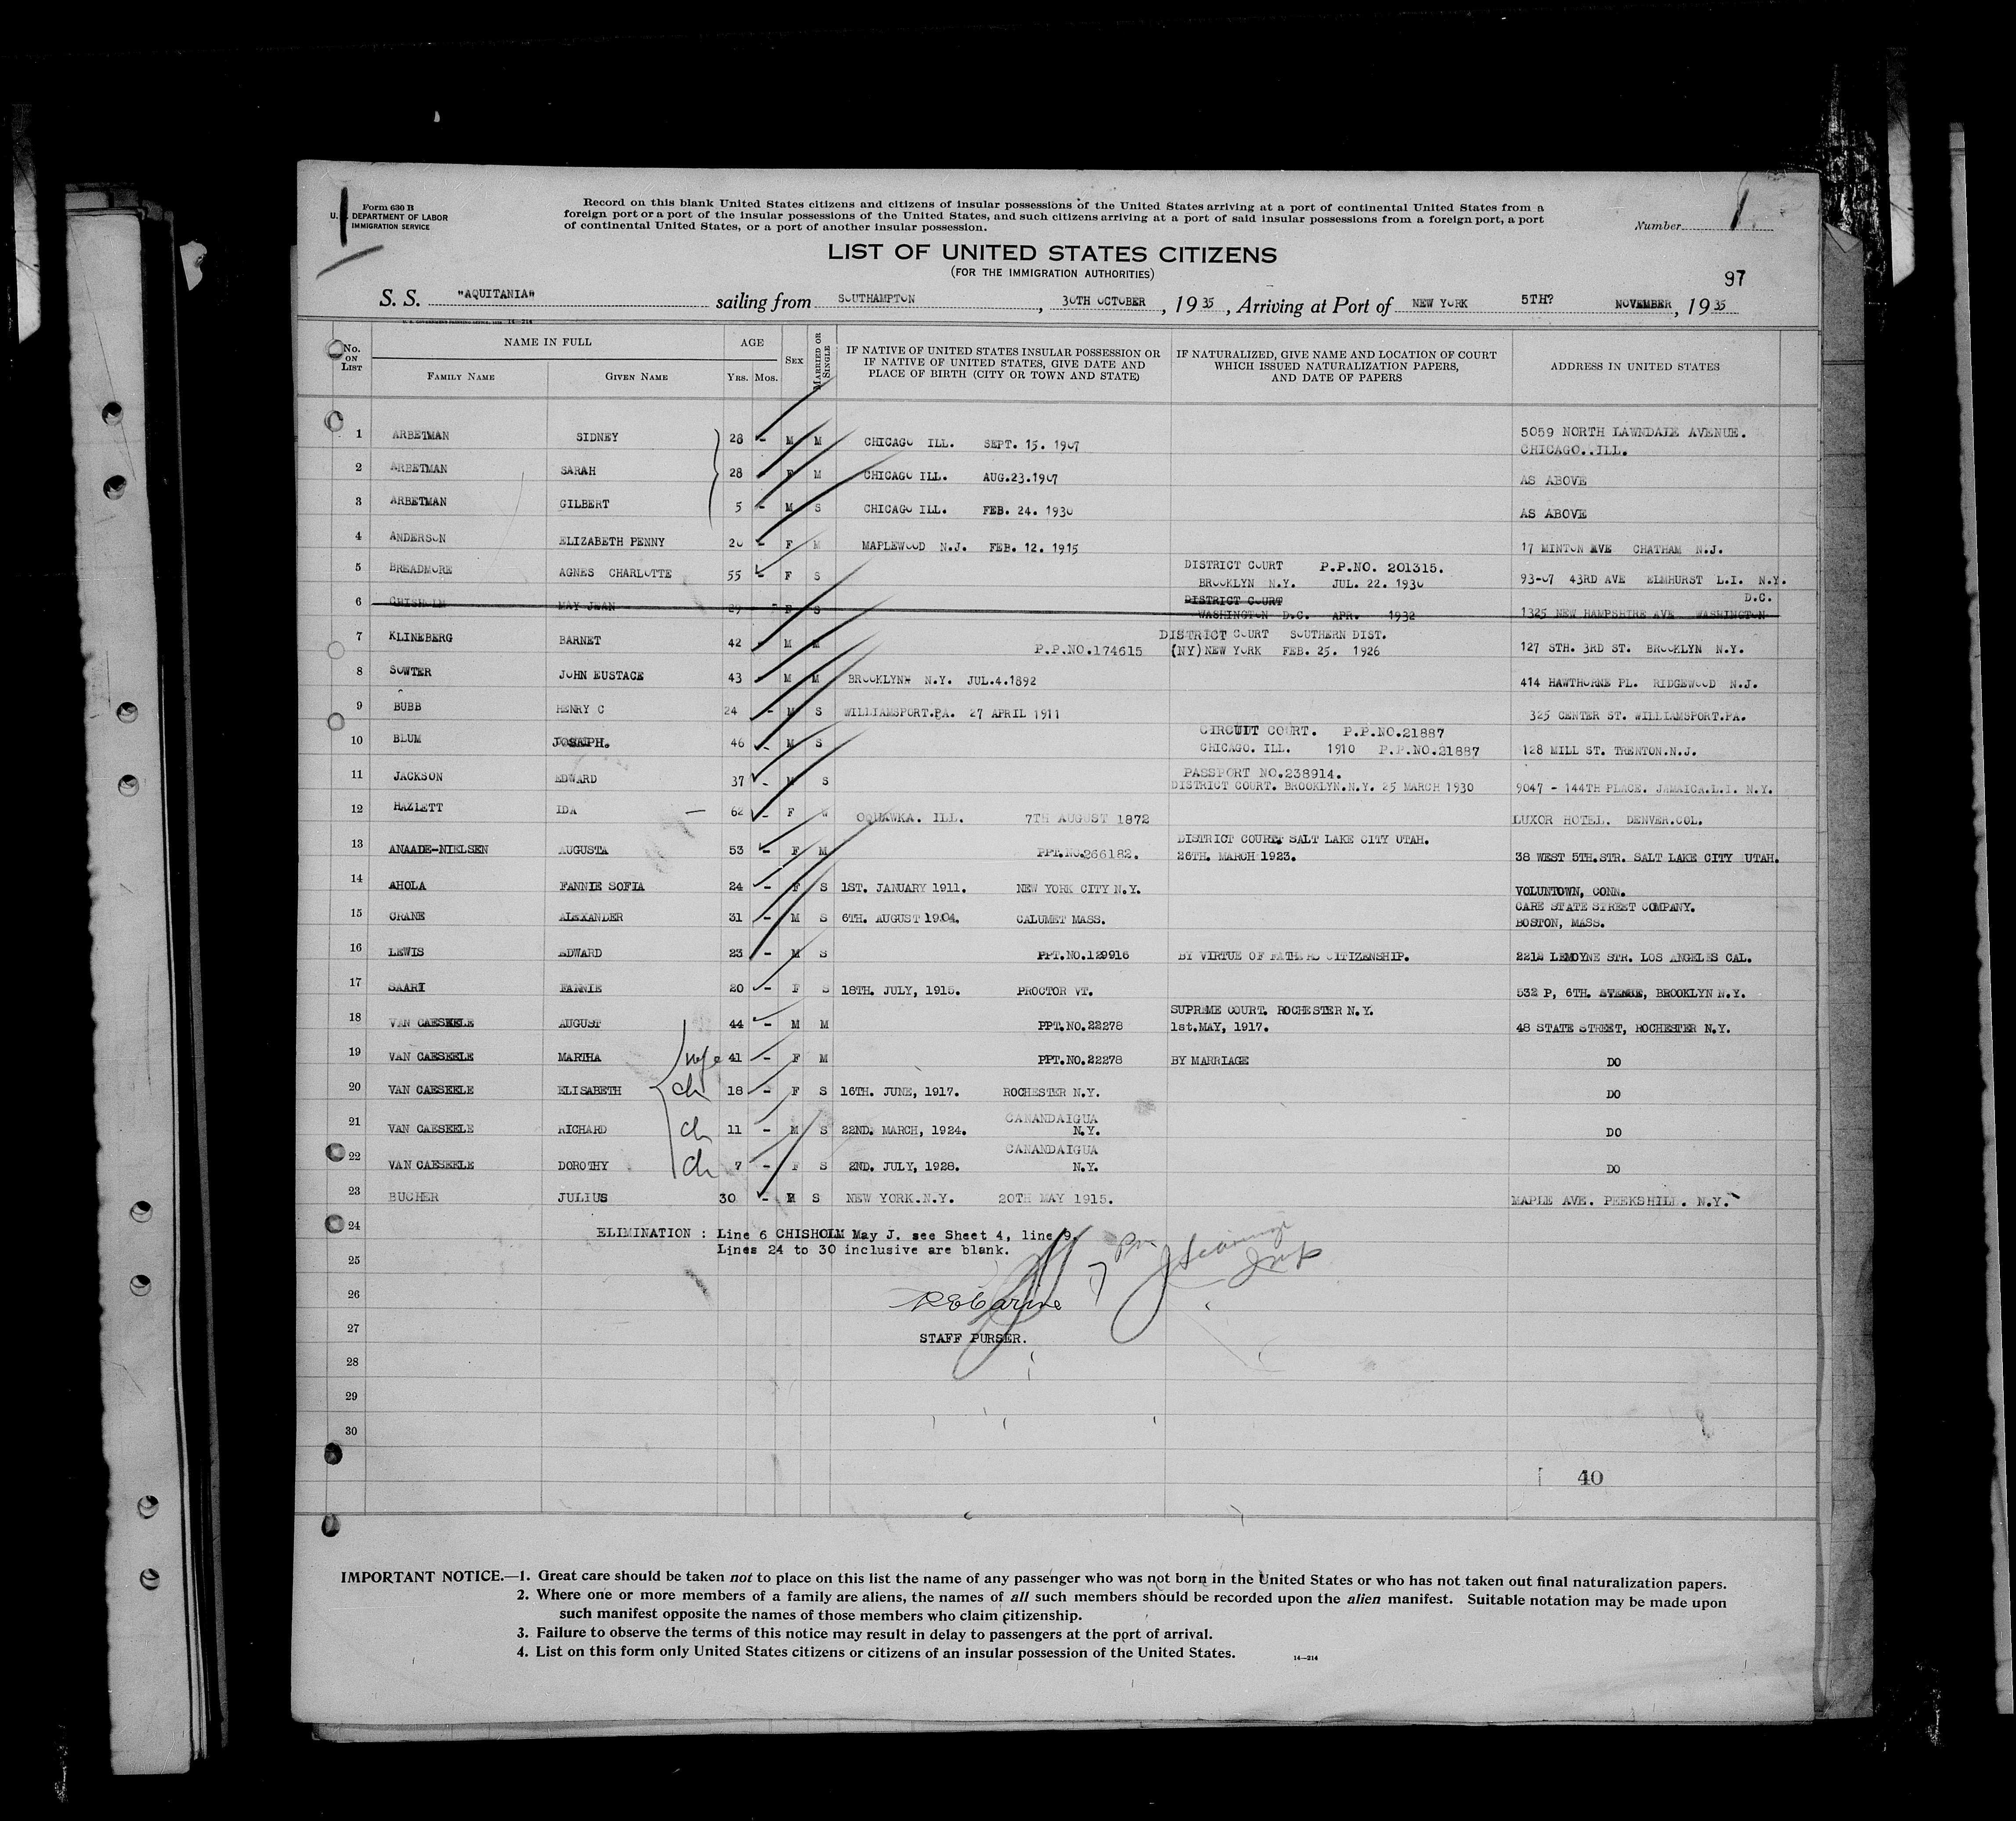 Form 630 B
U. S. DEPARTMENT OF LABOR
IMMIGRATION SERVICE
Record on this blank United States citizens and citizens of insular possessions of the United States arriving at a port of continental United States from a
foreign port or a port of the insular possessions of the United States, and such citizens arriving at a port of said insular possessions from a foreign port, a port
of continental United States, or a port of another insular possession.
Number 1
LIST OF UNITED STATES CITIZENS
(FOR THE IMMIGRATION AUTHORITIES)
97
S. S. "AQUITANIA" sailing from SOUTHAMPTON, 30TH OCTOBER, 1935, Arriving at Port of NEW YORK 5TH? NOVEMBER, 1935
No. ON LIST NAME IN FULL AGE SEX MARRIED OR SINGLE IF NATIVE OF UNITED STATES INSULAR POSSESSION OR IF NATIVE OF UNITED STATES, GIVE DATE AND PLACE OF BIRTH (CITY OR TOWN AND STATE) IF NATURALIZED, GIVE NAME AND LOCATION OF COURT WHICH ISSUED NATURALIZATION PAPERS, AND DATE OF PAPERS ADDRESS IN UNITED STATES
FAMILY NAME GIVEN NAME YRS. MOS.
1 ARBETMAN SIDNEY 28 - M M CHICAGO ILL. SEPT. 15. 1907 5059 NORTH LAWNDALE AVENUE. CHICAGO..ILL.
2 ARBETMAN SARAH 28 - F M CHICAGO ILL. AUG.23.1907 AS ABOVE
3 ARBETMAN GILBERT 5 - M S CHICAGO ILL. FEB. 24. 1930 AS ABOVE
4 ANDERSON ELIZABETH PENNY 20 - F M MAPLEWOOD N.J. FEB. 12. 1915 17 MINTON AVE CHATHAM N.J.
5 BREADMORE AGNES CHARLOTTE 55 - F S DISTRICT COURT P.P.NO. 201315. BROOKLYN N.Y. JUL. 22. 1930 93-07 43RD AVE ELMHURST L.I. N.Y.
6 CHISHOLM MAY JEAN 29 - F S DISTRICT COURT WASHINGTON D.C. APR. 1932 1325 NEW HAMPSHIRE AVE WASHINGTON D.C.
7 KLINEBERG BARNET 42 M M P.P.NO.174615 DISTRICT COURT SOUTHERN DIST. (NY) NEW YORK FEB. 25. 1926 127 STH. 3RD ST. BROOKLYN N.Y.
8 SOWTER JOHN EUSTACE 43 M M BROOKLYN N.Y. JUL.4.1892 414 HAWTHORNE PL. RIDGEWOOD N.J.
9 BUBB HENRY C 24 - M S WILLIAMSPORT.PA. 27 APRIL 1911 325 CENTER ST. WILLIAMSPORT.PA.
10 BLUM JOSEPH. 46 - M S CIRCUIT COURT. P.P.NO.21887 CHICAGO. ILL. 1910 P.P.NO.21887 128 MILL ST. TRENTON.N.J.
11 JACKSON EDWARD 37 - M S PASSPORT NO.238914. DISTRICT COURT. BROOKLYN.N.Y. 25 MARCH 1930 9047 - 144TH PLACE. JAMAICA.L.I. N.Y.
12 HAZLETT IDA 62 - F W OQUAWKA. ILL. 7TH AUGUST 1872 LUXOR HOTEL. DENVER.COL.
13 ANAADE-NIELSEN AUGUSTA 53 - F M PPT.NO.266182. DISTRICT COURT SALT LAKE CITY UTAH. 26TH. MARCH 1923. 38 WEST 5TH.STR. SALT LAKE CITY UTAH.
14 AHOLA FANNIE SOFIA 24 - F S 1ST. JANUARY 1911. NEW YORK CITY N.Y. VOLUNTOWN, CONN.
15 CRANE ALEXANDER 31 - M S 6TH. AUGUST 1904. CALUMET MASS. CARE STATE STREET COMPANY. BOSTON, MASS.
16 LEWIS EDWARD 23 - M S PPT.NO.129916 BY VIRTUE OF FATHERS CITIZENSHIP. LEMOYNE STR. LOS ANGELES CAL.
17 SAARI FANNIE 20 - F S 18TH. JULY, 1915. PROCTOR VT. 532 P, 6TH. AVENUE, BROOKLYN N.Y.
18 VAN CAESEELE AUGUST 44 - M M PPT.NO.22278 SUPREME COURT. ROCHESTER N.Y. 1st.MAY, 1917. 48 STATE STREET, ROCHESTER N.Y.
19 VAN CAESEELE MARTHA wife 41 - F M PPT.NO.22278 BY MARRIAGE DO
20 VAN CAESEELE ELISABETH ch 18 - F S 16TH. JUNE, 1917. ROCHESTER N.Y. DO
21 VAN CAESEELE RICHARD ch 11 - M S 22ND. MARCH, 1924. CANANDAIGUA N.Y. DO
22 VAN CAESEELE DOROTHY ch 7 - F S 2ND. JULY, 1928. CANANDAIGUA N.Y. DO
23 BUCHER JULIUS 30 - M S NEW YORK.N.Y. 20TH MAY 1915. MAPLE AVE. PEEKSHILL. N.Y.
24 ELIMINATION : Line 6 CHISHOLM May J. see Sheet 4, line 9.
Lines 24 to 30 inclusive are blank.
25
26
27 STAFF PURSER.
28
29
30
40
IMPORTANT NOTICE.—1. Great care should be taken not to place on this list the name of any passenger who was not born in the United States or who has not taken out final naturalization papers.
2. Where one or more members of a family are aliens, the names of all such members should be recorded upon the alien manifest. Suitable notation may be made upon
such manifest opposite the names of those members who claim citizenship.
3. Failure to observe the terms of this notice may result in delay to passengers at the port of arrival.
4. List on this form only United States citizens or citizens of an insular possession of the United States.
14—214